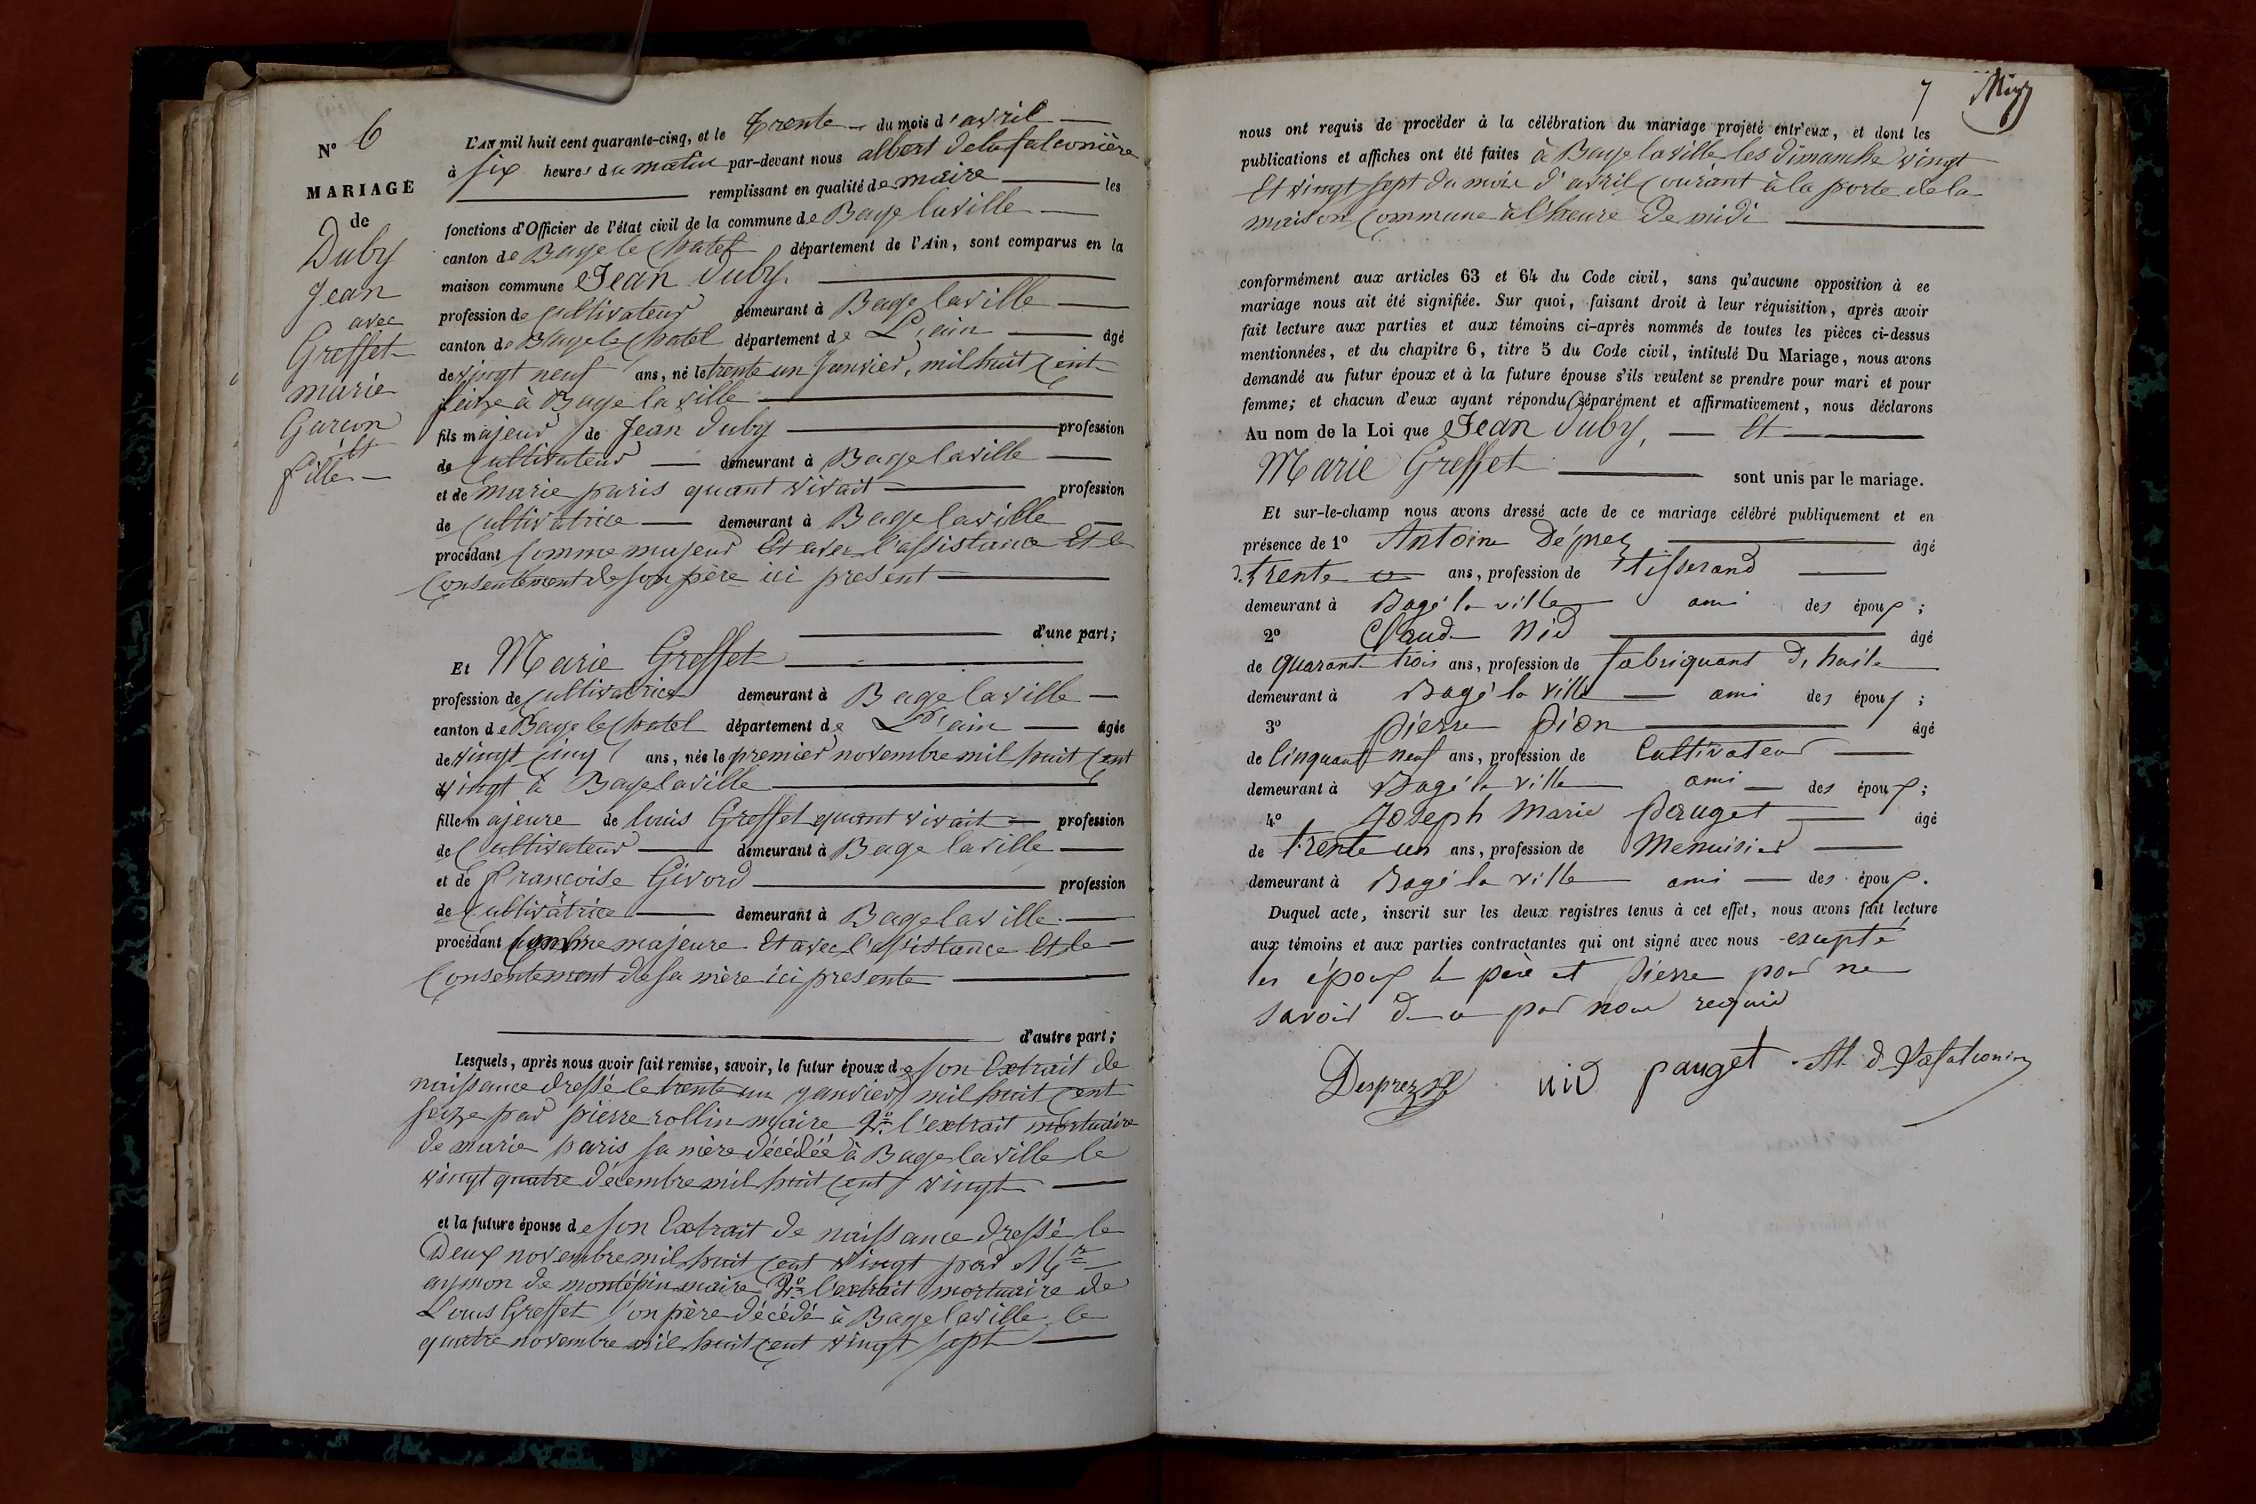 N° 6
MARIAGE
de
Duby
Jean
avec
Greffet
marie
Garçon
et
fille
L'AN mil huit cent quarante-cinq, et le trente du mois d'avril
à six heures du matin par-devant nous albert delafalconière
remplissant en qualité de maire les
fonctions d'Officier de l'état civil de la commune de Bage laville
canton de Bage le Chatel département de l'Ain, sont comparus en la
maison commune Jean Duby.
profession de Cultivateur demeurant à Bage laville
canton de Bage le Chatel département de L'ain âgé
de vingt neuf ans, né le trente un Janvier, mil huit Cent
seize à Bage la ville
fils majeur de Jean Duby profession
de Cultivateur demeurant à Bage laville
et de marie paris quant vivait profession
de Cultivatrice demeurant à Bage laville
procédant Comme majeur Et avec l'assistance Et le
Consentement de son père ici présent
d'une part;
Et Marie Greffet
profession de Cultivatrice demeurant à Bage laville
canton de Bage le Chatel département de L'ain âgée
de vingt cinq ans, née le premier novembre mil huit Cent
vingt à Bage laville
fille majeure de louis Greffet quant vivait profession
de Cultivateur demeurant à Bage laville
et de françoise Givord profession
de Cultivatrice demeurant à Bage laville
procédant Comme majeure Et avec l'assistance Et le
Consentement de sa mère ici presente
d'autre part;
Lesquels, après nous avoir fait remise, savoir, le futur époux de son Extrait de
naissance dressé le trente un janvier mil huit Cent
seize par pierre rollin maire 2° l'extrait mortuaire
de marie paris sa mère décédée à Bage laville le
vingt quatre décembre mil huit Cent vingt
et la future épouse de son Extrait de naissance dressé le
Deux novembre mil huit Cent vingt par Mr
aymon de montépin maire 2° l'extrait mortuaire de
Louis Greffet son père décédé à Bage laville le
quatre novembre mil huit Cent vingt sept
7
nous ont requis de procéder à la célébration du mariage projeté entr'eux, et dont les
publications et affiches ont été faites à Bage laville les dimanche vingt
Et vingt sept du mois d'avril Courant à la porte de la
maison Commune à l'heure de midi
conformément aux articles 63 et 64 du Code civil, sans qu'aucune opposition à ce
mariage nous ait été signifiée. Sur quoi, faisant droit à leur réquisition, après avoir
fait lecture aux parties et aux témoins ci-après nommés de toutes les pièces ci-dessus
mentionnées, et du chapitre 6, titre 5 du Code civil, intitulé Du Mariage, nous avons
demandé au futur époux et à la future épouse s'ils veulent se prendre pour mari et pour
femme; et chacun d'eux ayant répondu séparément et affirmativement, nous déclarons
Au nom de la Loi que Jean Duby, Et
Marie Greffet sont unis par le mariage.
Et sur-le-champ nous avons dressé acte de ce mariage célébré publiquement et en
présence de 1° Antoine Déprez âgé
de trente ans, profession de tisserand
demeurant à Bagé la ville ami des époux;
2° Claude Nid âgé
de quarante trois ans, profession de fabriquant d'huile
demeurant à Bagé la ville ami des époux;
3° Pierre Pion âgé
de Cinquante neuf ans, profession de Cultivateur
demeurant à Bagé la ville ami des époux;
4° Joseph Marie Pauget âgé
de trente un ans, profession de Menuisier
demeurant à Bagé la ville ami des époux.
Duquel acte, inscrit sur les deux registres tenus à cet effet, nous avons fait lecture
aux témoins et aux parties contractantes qui ont signé avec nous excepté
les époux le père et Pierre pour ne
savoir de ce par nous requis
Desprez nid pauget Al. d Lafalconière